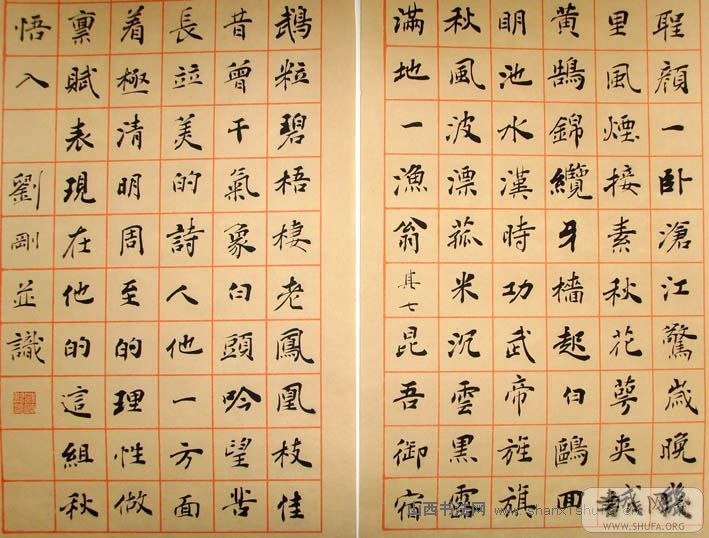 聖顏一卧滄江驚歲晚
里風煙接素秋花萼夾
黄鵠錦纜牙檣起白鷗回
明池水漢時功武帝旌旗
秋風波漂菰米沉雲黑露
滿地一漁翁其七昆吾御宿
鵡粒碧梧棲老鳳凰枝佳
昔曾干氣象白頭吟望苦
長並美的詩人他一方面
着極清明周至的理性做
稟賦表現在他的這組秋
悟入 劉剛並識
山西书法网
WWW.SHUFA.ORG